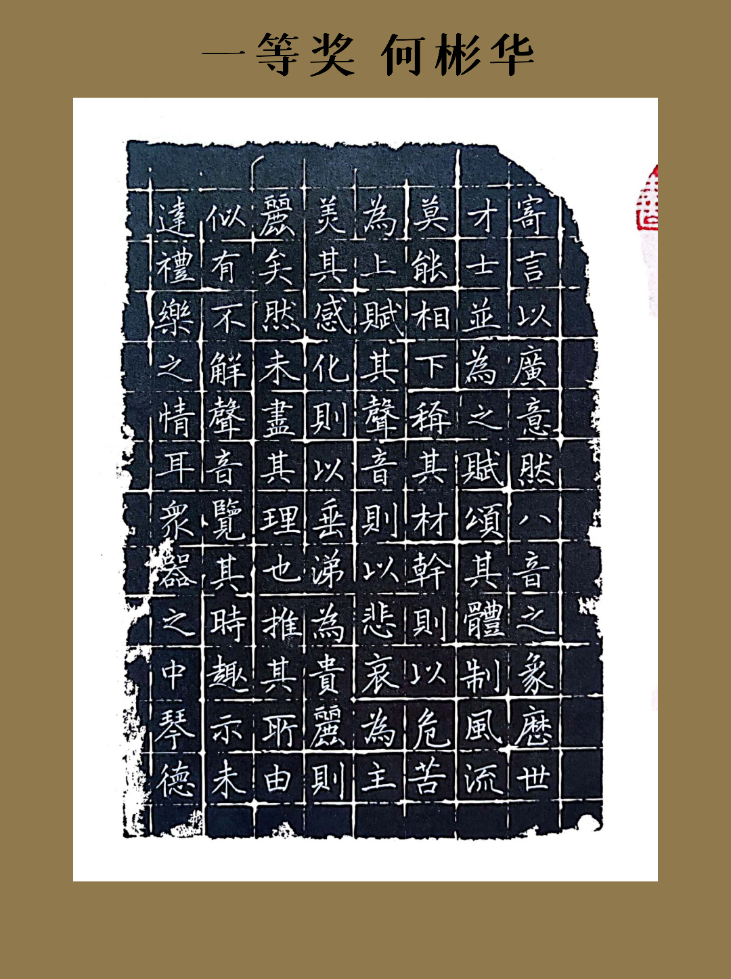 一等奖 何彬华
寄言以廣意然八音之象歷世
才士並為之賦頌其體制風流
莫能相下稱其材幹則以危苦
為上賦其聲音則以悲哀為主
美其感化則以垂涕為貴麗則
麗矣然未盡其理也推其所由
似有不解聲音覽其時趣示未
達禮樂之情耳眾器之中琴德